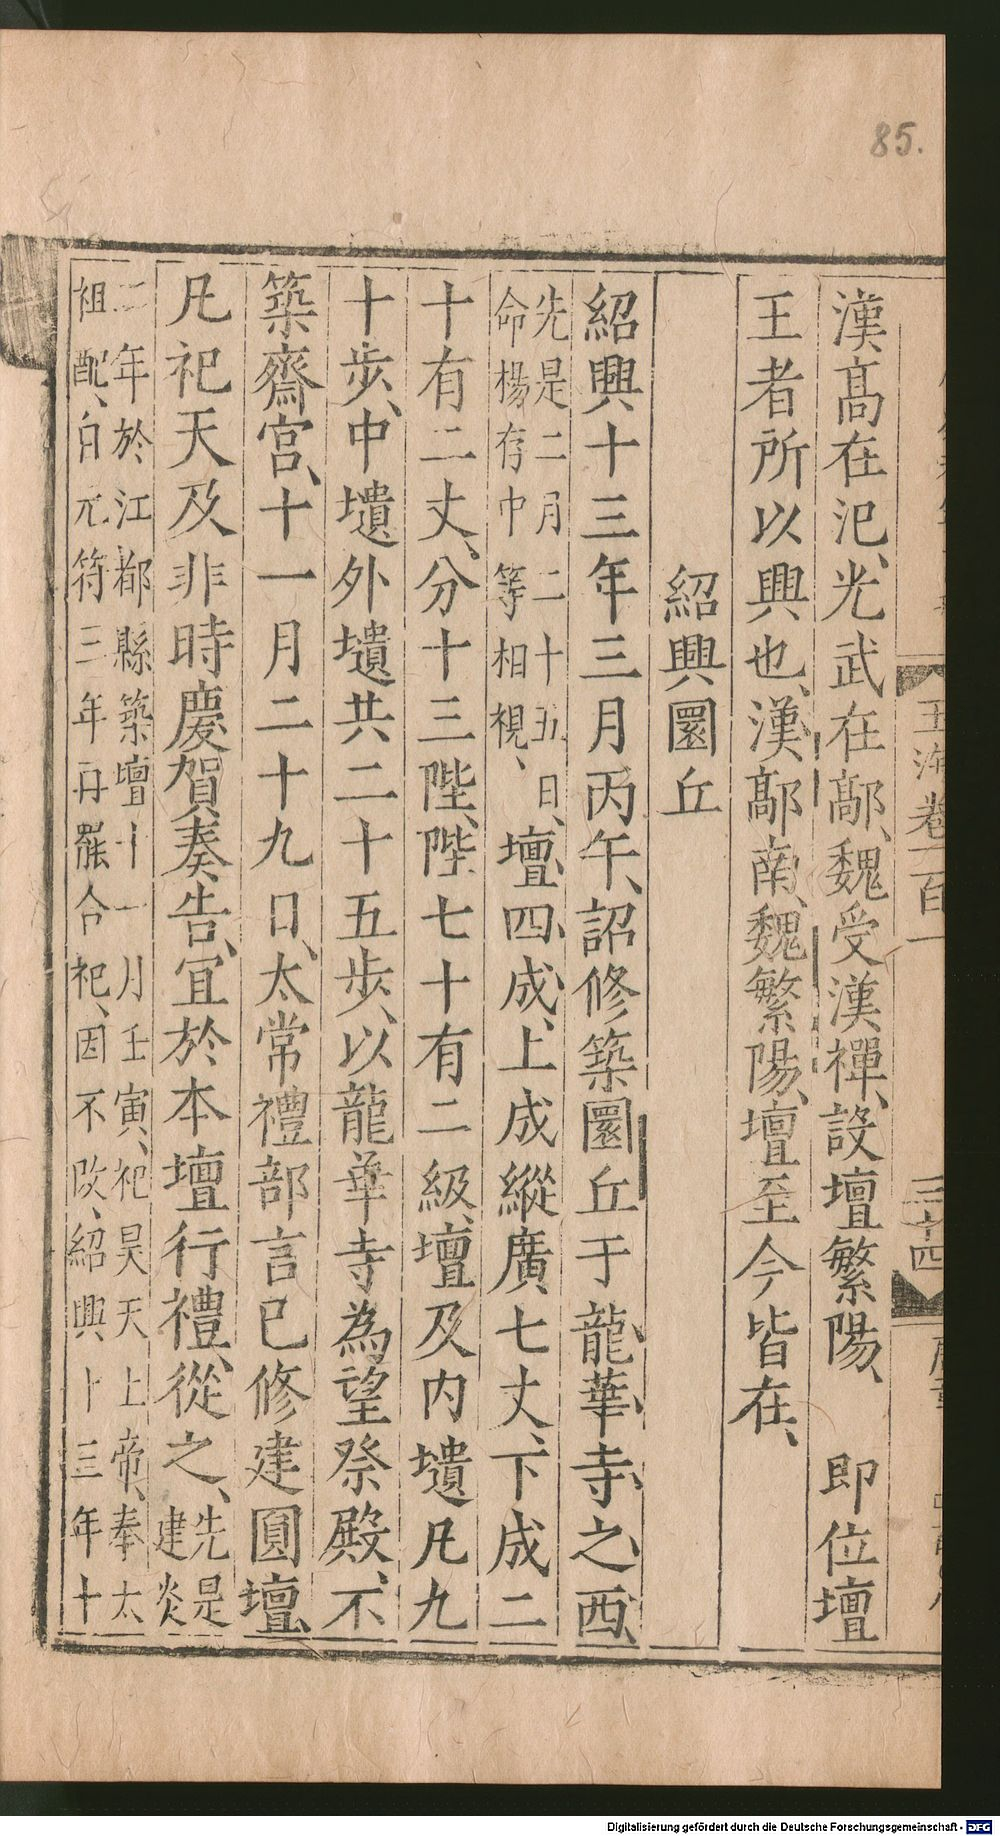 85.
玉海卷一百一
三十四
漢髙在汜、光武在鄗、魏受漢禪、設壇繁陽、　即位壇
王者所以興也、漢鄗南、魏繁陽、壇至今皆在、
紹興圜丘
紹興十三年三月丙午、詔修築圜丘于龍華寺之西、
先是二月二十五日、
命楊存中等相視、
壇四成、上成縱廣七丈、下成二
十有二丈、分十三陛、陛七十有二級、壇及内壝凡九
十步、中壝外壝共二十五步、以龍華寺為望祭殿、不
築齋宫、十一月二十九日、太常禮部言已修建圓壇、
凡祀天及非時慶賀奏告、宜於本壇行禮、從之、
先是
建炎
二年於江都縣築壇十一月壬寅、祀昊天上帝、奉太
祖配、自元符三年再罷合祀、因不改、紹興十三年十
Digitalisierung gefördert durch die Deutsche Forschungsgemeinschaft - DFG